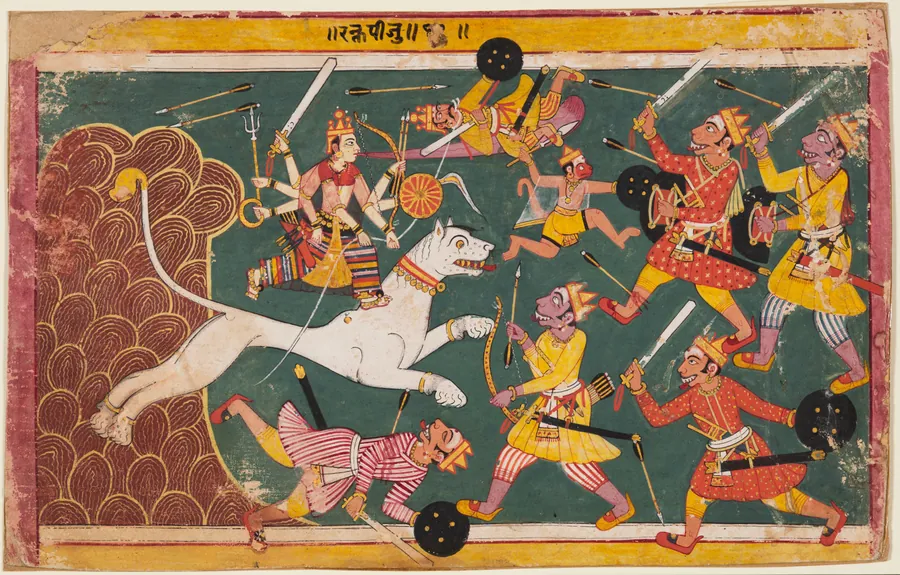 ॥रक्तपीजु॥ ॥